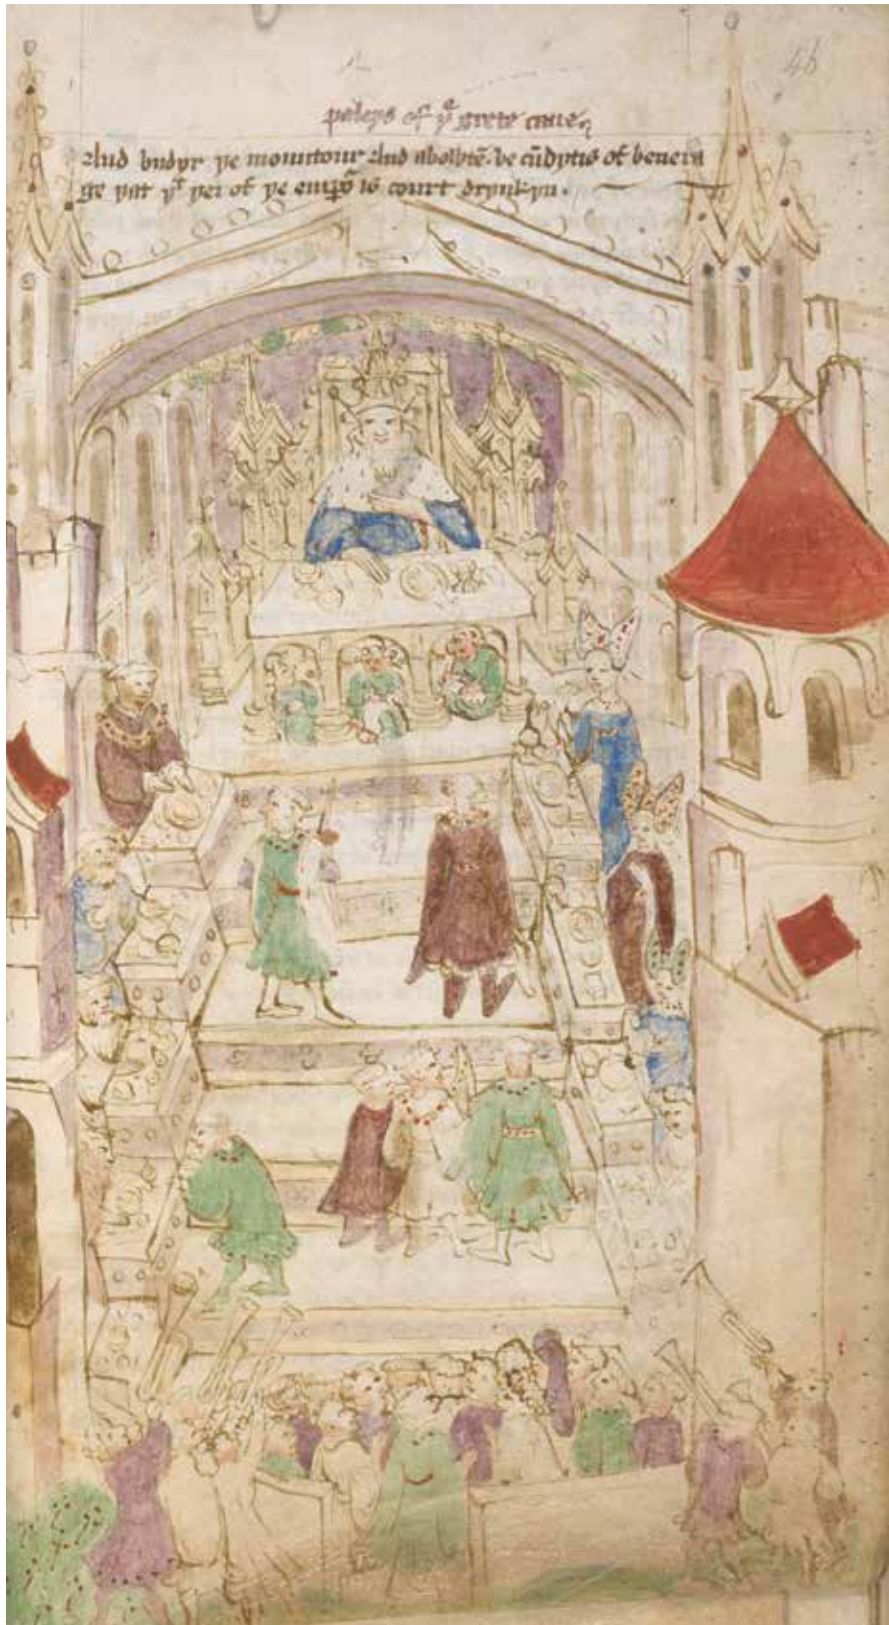 46
paleys of yͤ grete cane
And vndyr þe mountour And abowtē. be cūdytis of bevera
ge þat yͭ þei of þe emꝑoͬ is court drynkyn.